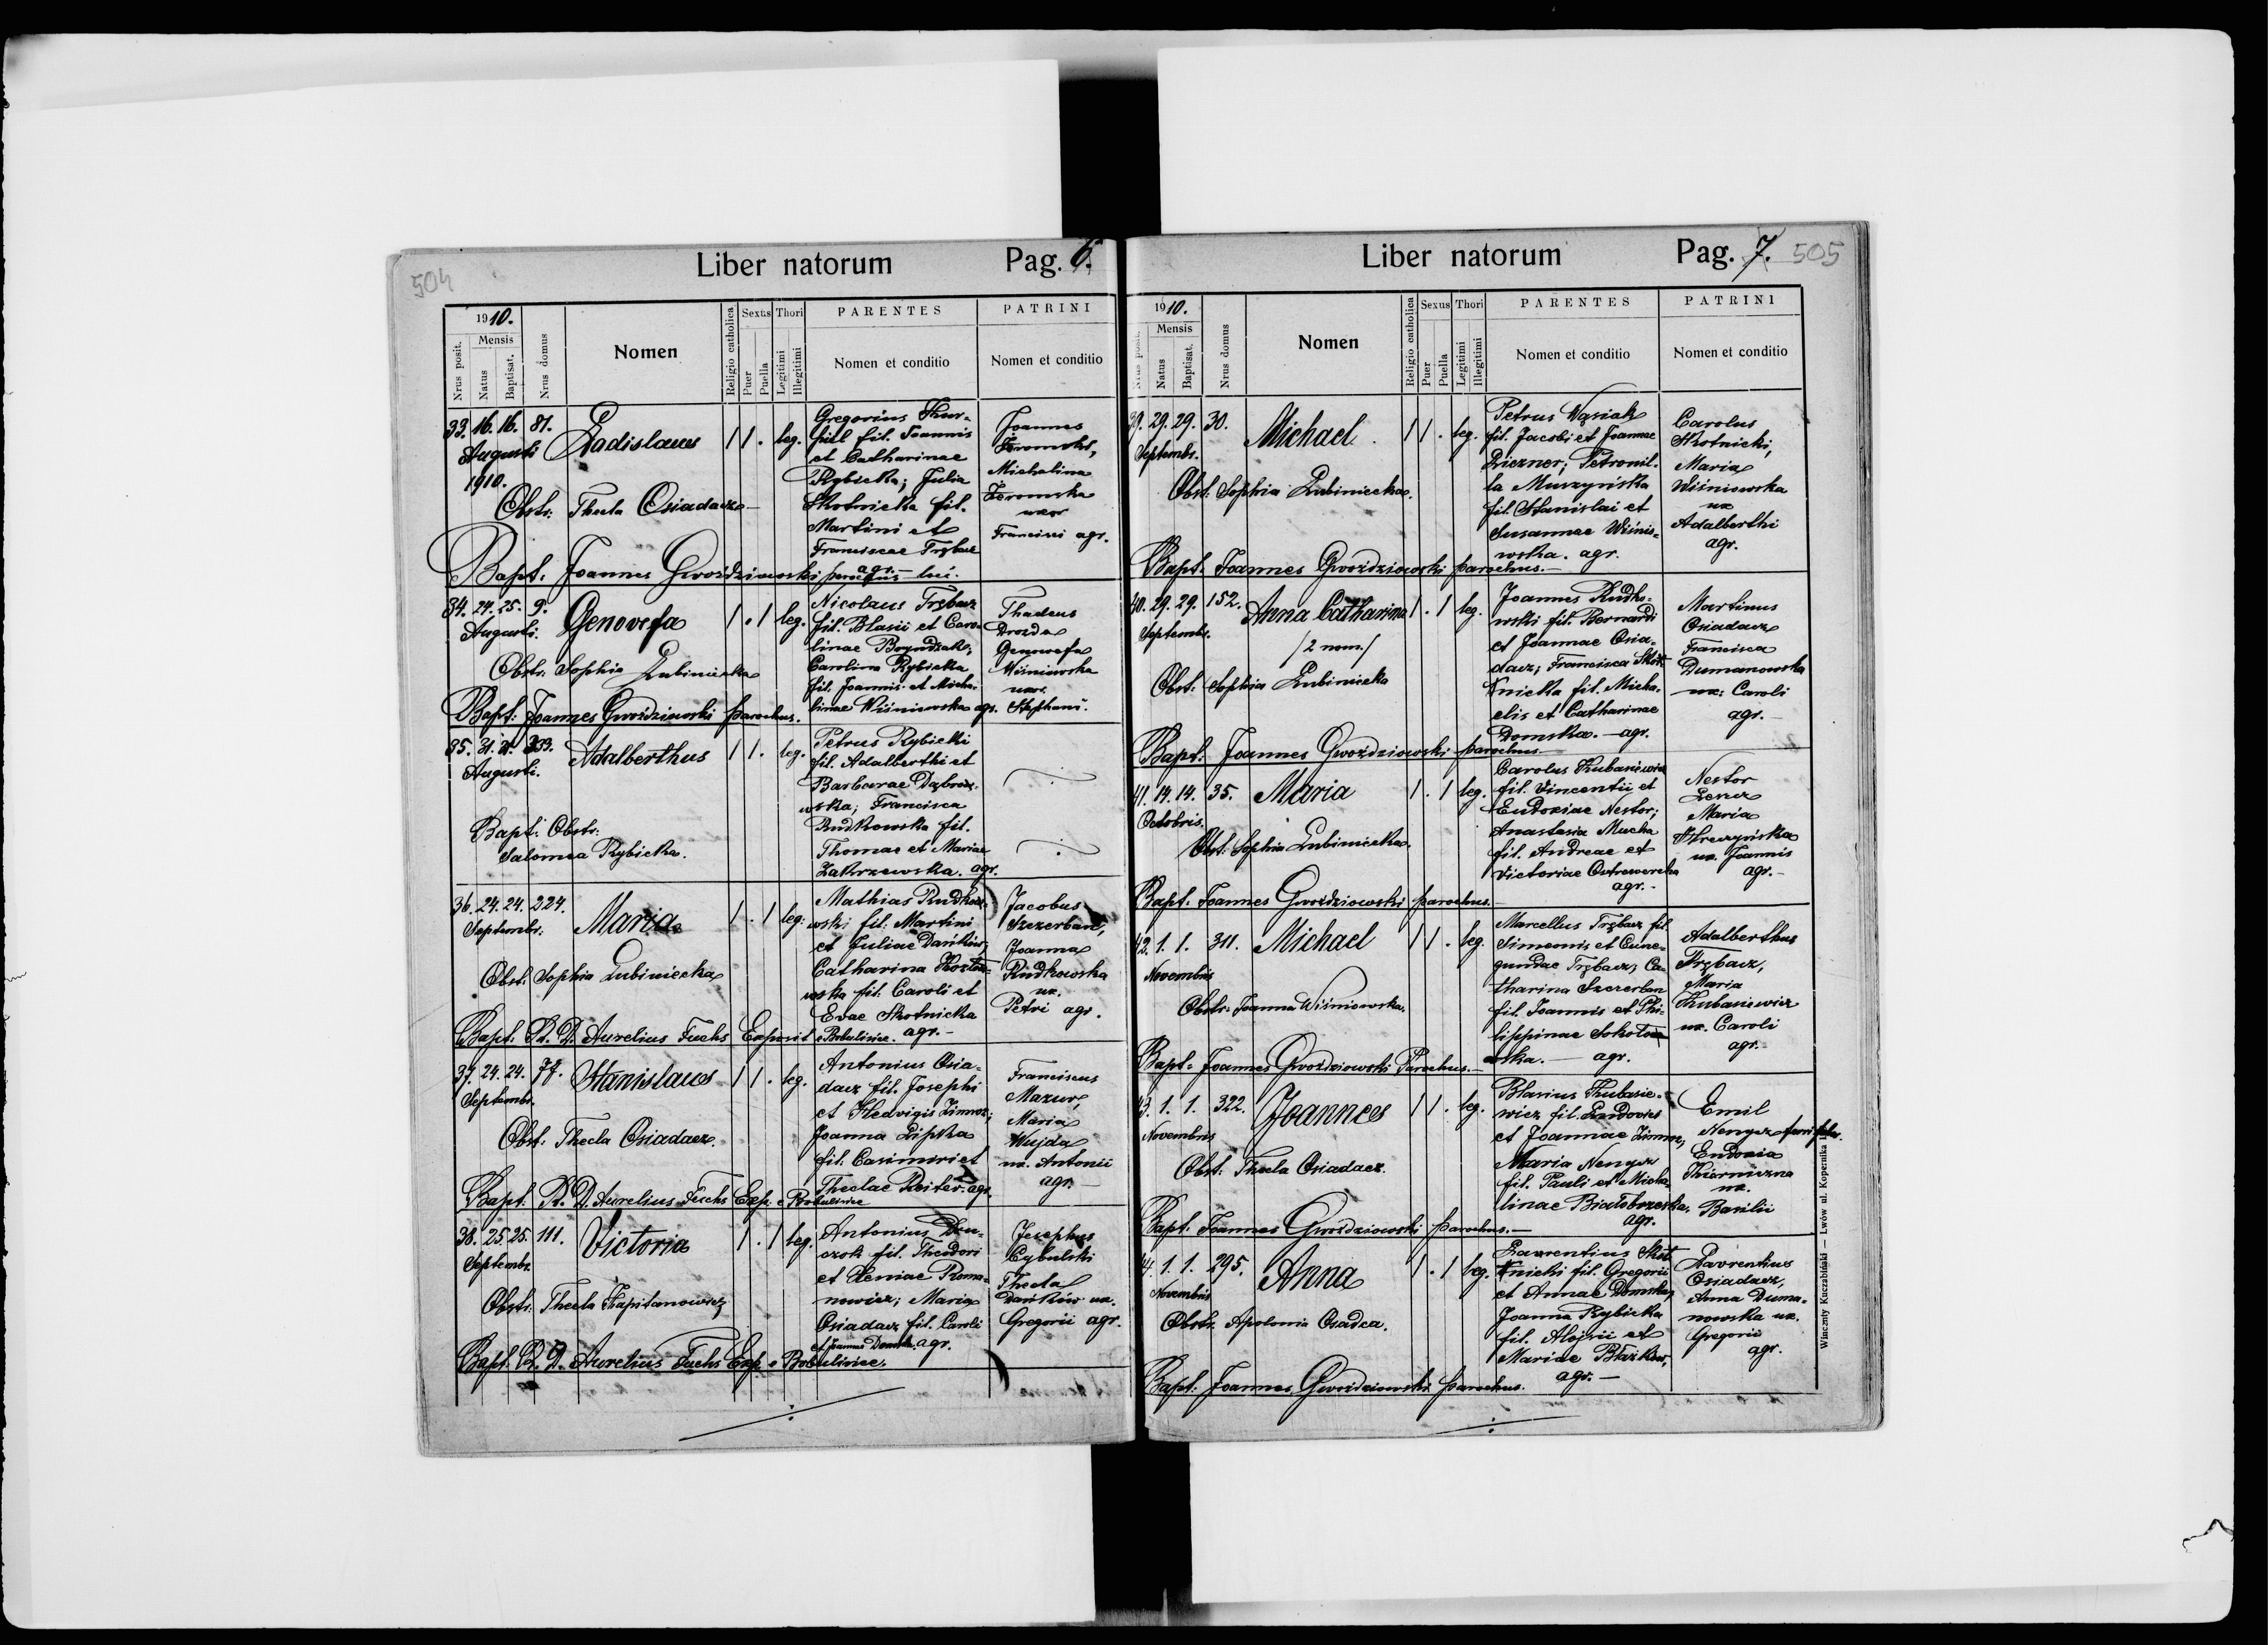 504
Liber natorum Pag. 6.
1910.
Nrus posit.
Mensis
Natus
Baptisat.
Nrus domus
Nomen
Religio catholica
Sexus
Puer
Puella
Thori
Legitimi
Illegitimi
PARENTES
Nomen et conditio
PATRINI
Nomen et conditio
33. 16. 16. 81. Ladislaus 1 1 . leg.
Augusti
1910.
Obstr. Thecla Osiadacz
Gregorius
fil. Joannis
et Catharinae
Rybicka; Julia
Skotnicka fil.
Martini et
Franciscae Trębacz
agr.
Joannes
Michalina
Żeromska
uxor
Francisci agr.
Bapt: Joannes Gwoździowski parochus
34. 24. 25. 9. Genovefa 1 . 1 leg.
Augusti.
Obstr. Sophia Lubiniecka
Nicolaus Trębacz
fil. Blasii et Caro-
linae
Carolina Rybicka
fil. Joannis et Micha-
linae Wiśniowska agr.
Thadeus
Drozda
Genowefa
Wiśniowska
uxor.
Stephani.
Bapt: Joannes Gwoździowski parochus.
35. 31. 31. 333. Adalberthus 1 1 . leg.
Augusti.
Petrus Rybicki
fil. Adalberthi et
Barbarae Dąbrow-
wska; Francisca
Rudkowska fil.
Thomae et Mariae
Zakrzewska. agr.
Bapt: Obstr:
Salomea Rybicka.
36. 24. 24. 224. Maria 1 . 1 leg.
Septembr.
Obst: Sophia Lubiniecka
Mathias Rudko-
wski fil. Martini
et Juliae Dańków;
Catharina
wska fil. Caroli et
Evae Skotnicka
agr.-
Jacobus
Szczerban,
Joanna
Rudkowska
ux.
Petri agr.
Bapt: R. D. Aurelius Fuchs Exposit e Bobulińce.
37. 24. 24. 77. Stanislaus 1 1 . leg.
Septembr.
Obst: Thecla Osiadacz.
Antonius Osia-
dacz fil. Josephi
et Hedvigis Zimroz;
Joanna Lipska
fil. Casimiri et
Theclae Reiter. agr.
Franciscus
Mazur,
Maria
Wujda
ux. Antonii
agr. -
Bapt. R. D. Aurelius Fuchs Exp. e Bobulińce
38. 25. 25. 111. Victoria 1 . 1 leg.
Septembr.
Obstr. Thecla Kapitanowicz
Antonius
fil. Theodori
et Roma-
nowicz; Maria
Osiadacz fil. Caroli
et Joannae Domska. agr.
Josephus
Cybulski
Thecla
Dańków ux.
Gregorii agr.
Bapt. R. D. Aurelius Fuchs Exp. e Bobulińce.
Liber natorum Pag. 7. 505
1910.
Nrus posit.
Mensis
Natus
Baptisat.
Nrus domus
Nomen
Religio catholica
Sexus
Puer
Puella
Thori
Legitimi
Illegitimi
PARENTES
Nomen et conditio
PATRINI
Nomen et conditio
39. 29. 29. 30. Michael. 1 1 . leg.
Septembr.
Obst. Sophia Lubiniecka.
Petrus Wąsiak
fil. Jacobi et Joannae
Petronil-
la Muszyńska
fil. Stanislai et
Susannae Wiśnio-
wska. agr.
Carolus
Skotnicki,
Maria
Wiśniowska
ux
Adalberthi
agr.
Bapt. Joannes Gwoździowski parochus.-
40. 29. 29. 152. Anna Catharina 1 . 1 leg.
Septembr.
/2 nom./
Obst: Sophia Lubiniecka
Joannes Rudko-
wski fil. Bernardi
et Joannae Osia-
dacz; Francisca Skot
nicka fil. Micha-
elis et Catharinae
Domska. - agr.
Martinus
Osiadacz
Francisca
Dumanowska
ux: Caroli
agr. -
Bapt: Joannes Gwoździowski parochus.
41. 14. 14. 35. Maria 1 . 1 leg.
Octobris.
Obst: Sophia Lubiniecka.
Carolus Kubasiewicz
fil. Vincentii et
Eudoxiae Nestor;
Anastasia Mucha
fil. Andreae et
Victoriae
agr. -
Nestor
Maria
ux. Joannis
agr. -
Bapt: Joannes Gwoździowski parochus.
42. 1. 1. 311. Michael 1 1 . leg.
Novembris
Obstr: Joanna Wiśniowska.
Marcellus Trębacz fil.
Simeonis et Cune-
gundae Trębacz; Ca-
tharina Szczerban
fil. Joannis et Phi-
lippinae Sokoło-
wska. - agr.
Adalberthus
Trębacz,
Maria
Kubasiewicz
ux. Caroli
agr.
Bapt: Joannes Gwoździowski Parochus.-
43. 1. 1. 322. Joannes 1 1 . leg.
Novembris
Obst: Thecla Osiadacz.
Blasius Kubasie-
wicz fil. Ludovici
et Joannae
Maria Nengsz
fil. Pauli et Micha-
linae Białobrzeska.
agr.
Emil
Eudoxia
ux.
Basilii
Bapt. Joannes Gwoździowski parochus.-
44. 1. 1. 295. Anna 1 . 1 leg.
Novembris
Obstr. Apolonia Osadca.
Laurentius Skot
nicki fil. Gregorii
et Annae Domska,
Joanna Rybicka
fil. Alojsii et
Mariae Błażków,
agr. -
Laurentius
Osiadacz,
Anna Duma-
nowska ux.
Gregorii
agr.
Bapt: Joannes Gwoździowski parochus.
Wincenty Kuczabiński — Lwów ul. Kopernika